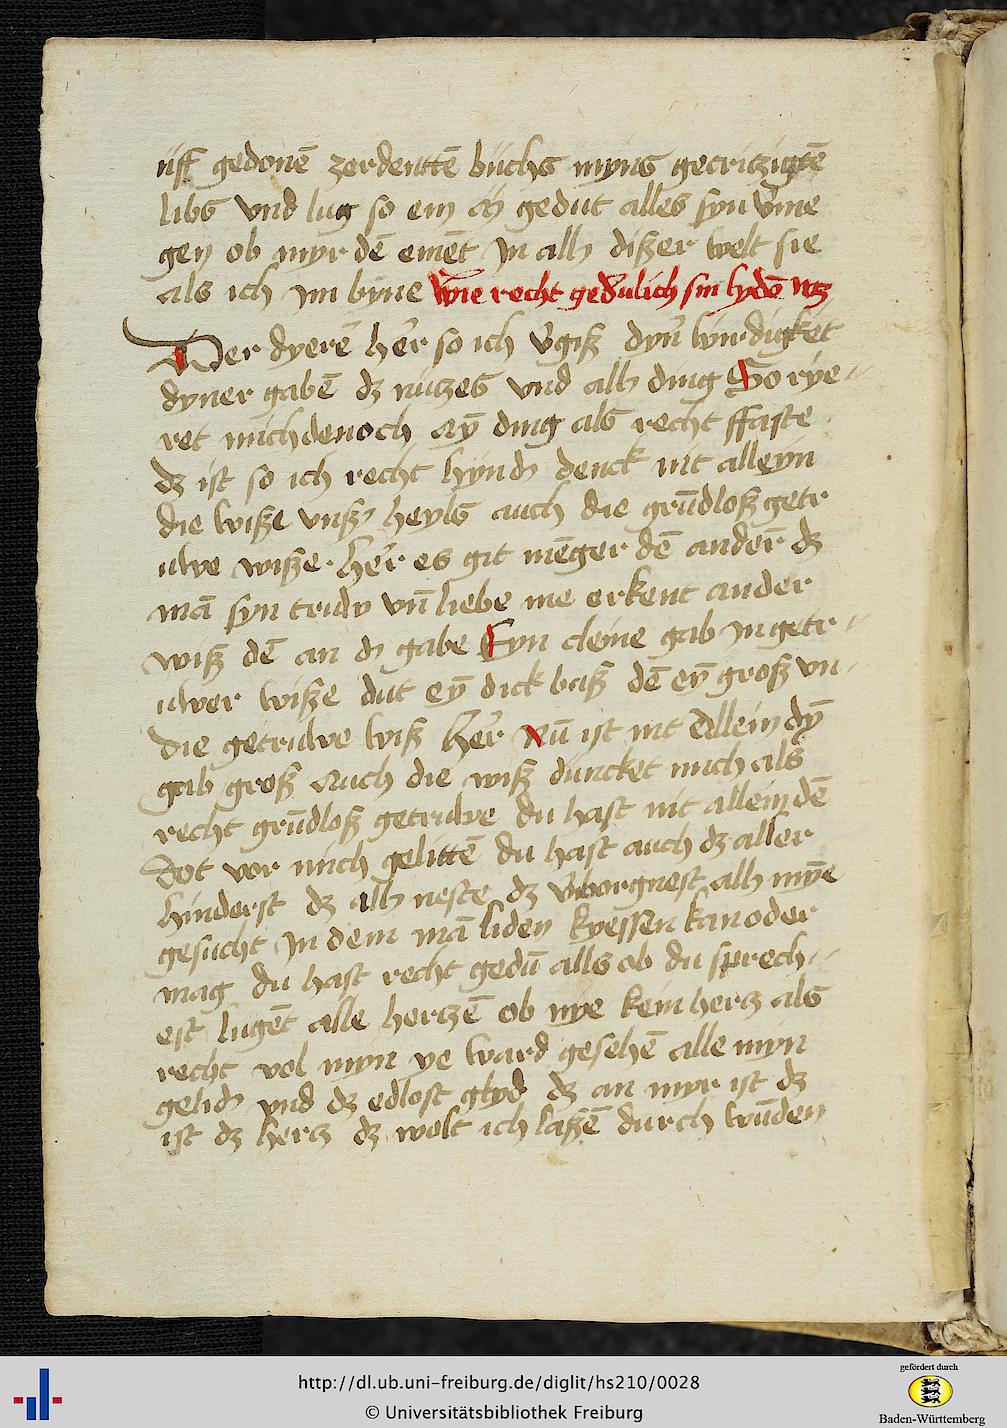 uff gedonē zerdentē buchs myns gecrutzigtē
libs vnd lug so ein gedut alles syn
gen ob myr dē einēt In alls dißer welt sie
als ich im byne wie recht gedulich sin lydē
Der dyerē her so ich v̄giß dyn̄ wirdigket
dyner gabē dz nutzes vnd alls ding So rye
ret mich denoch Ay̅ ding als recht ffaste
dz ist so ich recht hynds denck nit alleyn
die wiße vnß heyls auch die grūdloß getr
uwe wiße her es git mēger dē anderē dz
mā syn truw vn̄ liebe me erkent ander
wiß dē an ds gabe Eyn cleine gab In getr
uwer wiße dut ey̅ dick baß dē ey̅ groß vn
die getruwe wiß her Nū ist nit allein dy̅
gab groß Auch die wiß duncket mich als
recht grūdloß getruwe du hast nit allein dē
dot vor mich gelittē du hast auch dz aller
hinderst dz alls neste dz v̄borgnest alls mȳe
gesucht In dem mā liden kyessen kan oder
mag du hast recht gedū alls ob du sprech
est lugēt alle hertzē ob nye kein hertz als
recht vol myn ye ward gesehē alle myn
gelids vnd dz edlost glyd dz an myr ist dz
ist dz hertz dz wolt ich laßē durch wūden
http://dl.ub.uni-freiburg.de/diglit/hs210/0028
© Universitätsbibliothek Freiburg
gefördert durch
Baden-Württemberg